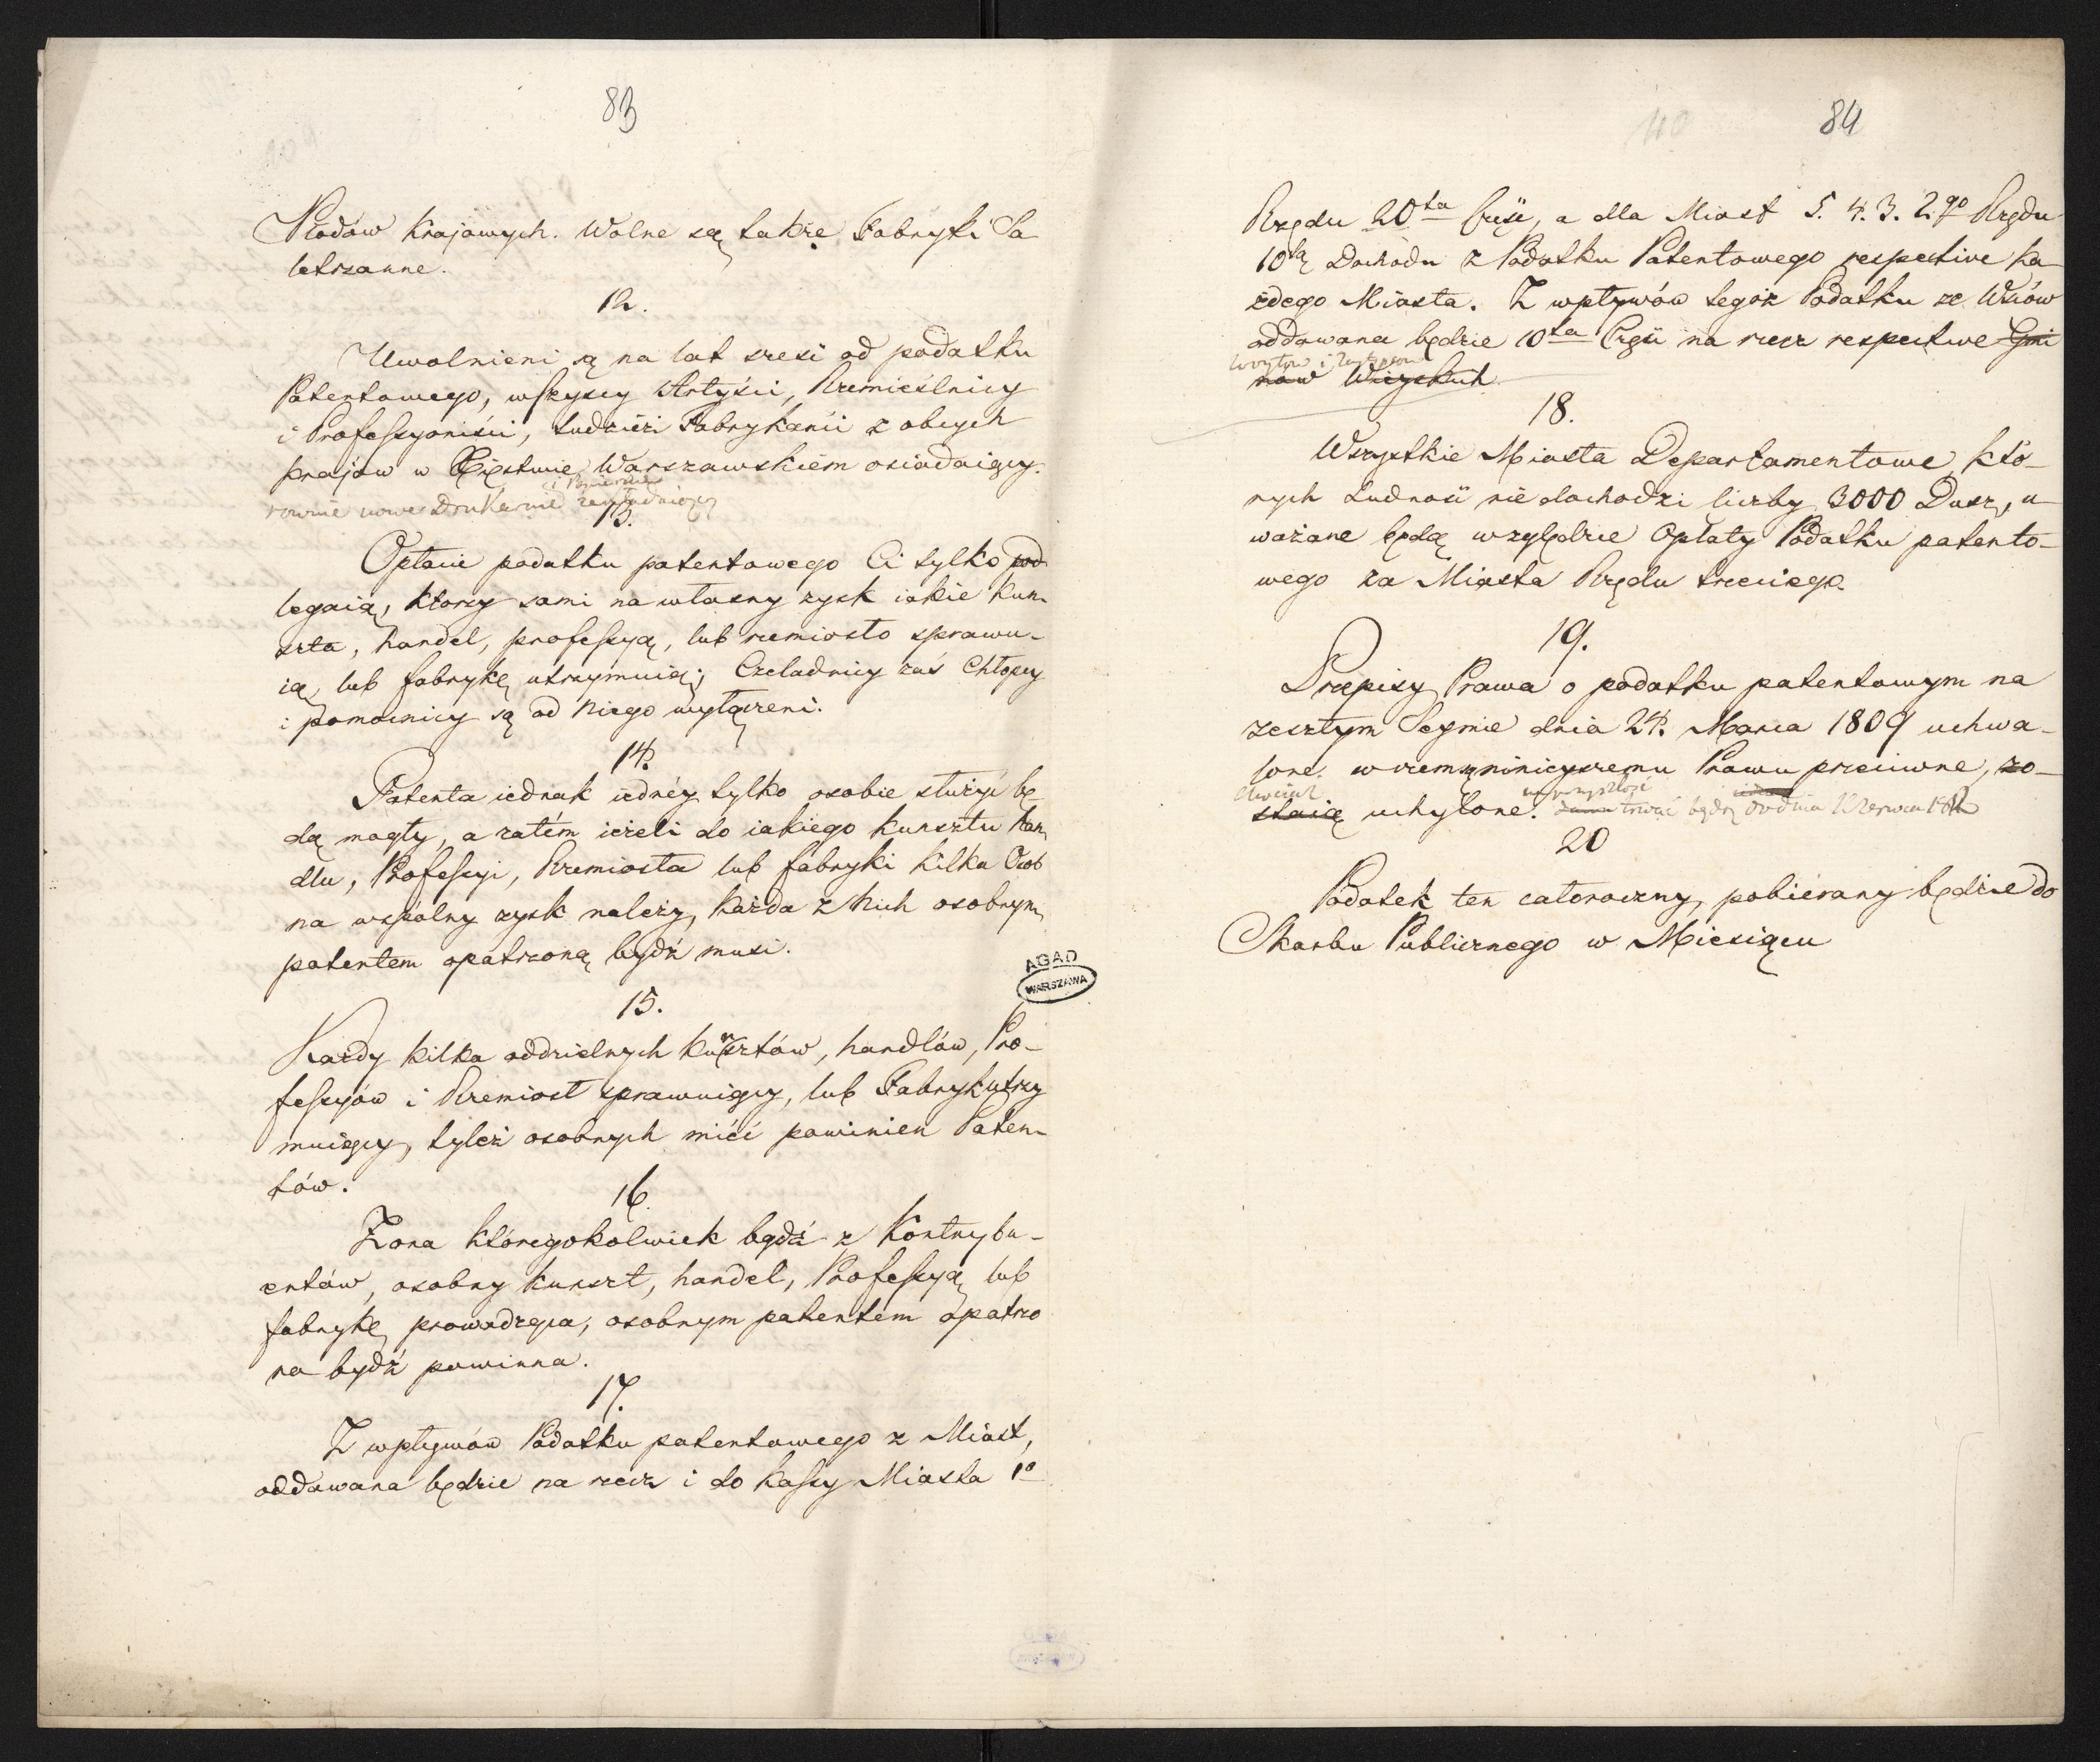 83
Płodów Krajowych. Wolne są także Fabryki Sa
letrzanne.
12.
Uwolnieni są na lat sześć od podatku
Patentowego, wszyscy Artyści, Rzemieślnicy
i Professyoniści, tudzież Fabrykańci z obcych
krajów w Xięstwie Warszawskiem osiadaiący.
rownie nowe Drukarnie
13.
Opłacie podatku patentowego Ci tylko pod
legaią, ktorzy sami na własny zysk iakie kun-
szta, handel, professyą, lub rzemiosło sprawu-
ią, lub fabrykę utrzymuią; Czeladnicy zaś Chłopcy
i pomocnicy są od niego wyłączeni.
14.
Patenta iednak iednéy tylko osobie służyć bę-
dą mogły, a zatém ieżeli do iakiego kunsztu han
dlu, Professyi, Rzemiosła lub fabryki kilka Osob
na wspólny zysk należy, każda z Nich osobnym
patentem opatrzoną bydź musi.
15.
Każdy kilka oddzielnych kunsztów, handlów, Pro-
fessyów i Rzemiosł sprawuiący, lub Fabryk utrzy
muiący, tyleż osobnych mićć powinien Paten-
tów.
16.
Zona któregokolwiek bądź z Kontrybu-
entów, osobny kunszt, handel, Professyą lub
fabrykę prowadząca, osobnym patentem opatrzo
na bydź powinna.
17.
Z wpływów Podatku patentowego z Miast,
oddawana będzie na rzecz i do kassy Miasta 1º
AGAD
WARSZAWA
84
Rzędu 20ta Część, a dla Miast 5. 4. 3. 2go Rzędu
10tą Dochodu z Podatku Patentowego respective ka
żdego Miasta. Z wpływów tegoż Podatku ze Wsiów
oddawana będzie 10ta Część na rzecz respective Gmi
now Wieyskich
18.
Wszystkie Miasta Departamentowe któ-
rych Ludność nie dochodzi liczby 3000 Dusz, u-
ważane będą względzie Opłaty Podatku patento-
wego za Miasta Rzędu trzeciego.
19.
Przepisy Prawa o podatku patentowym na
zeszłym Seymie dnia 24. Marca 1809 uchwa-
lone. w czem ninieyszemu Prawu przeciwne, zo-
staią uchylone. trwać będą od dnia 1 Czerwca
20
Podatek ten całoroczny, pobierany będzie do
Skarbu Publicznego w Miesiącu